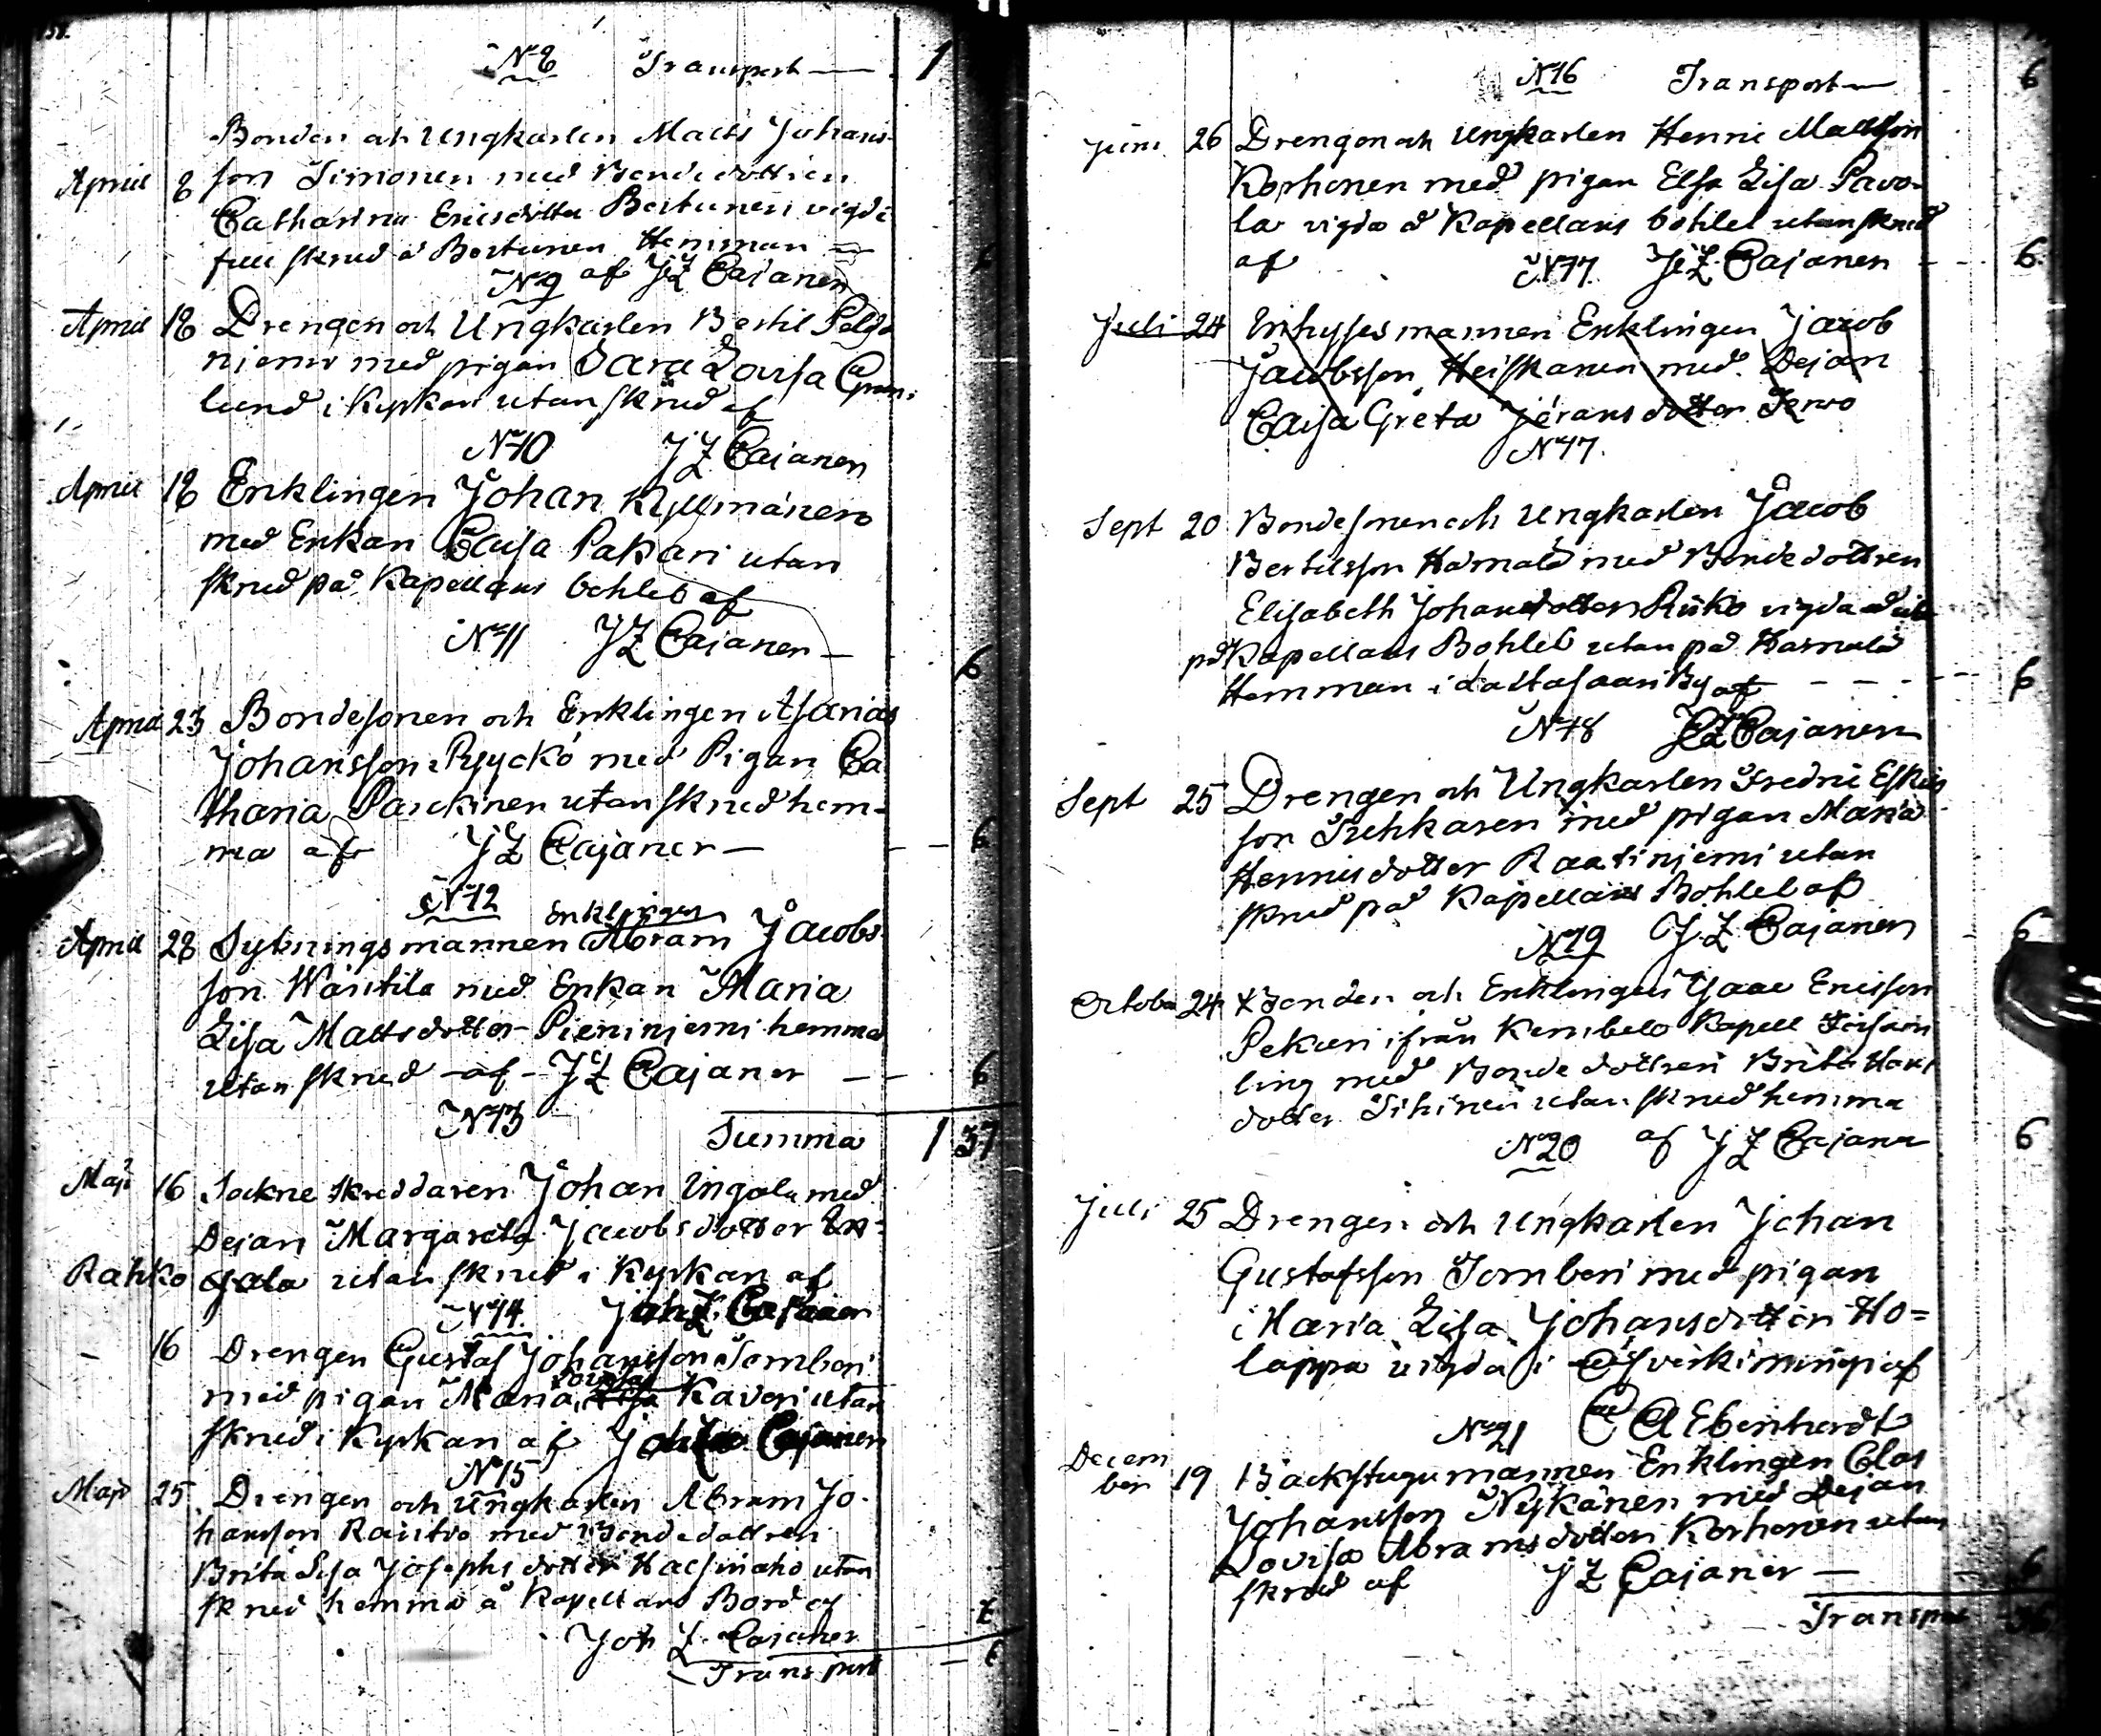 No 8 Transport — 1
Bonden och Ungkarlen Matts Johans-
April 8 son Simonen med Bondedottren
Catharina Ericsdotter Bertunen vigde
full skrud å Bertunen Hemman —
No 9 af JZ Cajanen
April 18 Drengen och Ungkarlen Bertil
niemi med pigan Sara Lovisa Gran-
lund i Kyrkan utan skrud af
No 10 JZ Cajanen
April 18 Enklingen Johan Kyllmänen
med Enkan Caisa Pakari utan
skrud på Kapellans bohleb af
No 11 JZ Cajanen — 6
April 23 Bondesonen och Enklingen Asarias
Johansson Pyyckö med Pigan Ca
tharia Parckinen utan skrud hem-
ma af JZ Cajaner — 6
No 12 Enklingen
April 28 Sytningsmannen Abram Jacobs-
son Wäntila med Enkan Maria
Lisa Mattsdotter Pieniniemi hemma
utan skrud af JZ Cajaner — 6
No 13 Summa 1 37
Maji 16 Sockne Skreddaren Johan Ingala med
Dejan Margareta Jacobsdotter
Rahko utan skrud i Kyrkan af
No 14. Joh Z. Cajaner
— 16 Drengen Gustaf Johansson Tornberi
med pigan Maria Lovisa Kaveri utan
skrud i Kyrkan af Joh Z Cajanen
No 15
Maji 25 Drengen och Ungkarlen Abram Jo-
hansson Rautio med Bondedottren
Brita Lisa Josephsdotter Halsinaho utan
skrud hemma å Kapellans Bord af
Joh Z. Cajaner
Transport — 6
No 16 Transport — 6
Juni 26 Drengen och Ungkarlen Henric Mattsson
Korhonen med pigan Elsa Lisa Pavo-
la vigda å Kapellans bohlel utan skrud
af No 17. JZ Cajanen — 6
Juli 24 Inhysesmannen Enklingen Jacob
Jacobsson Heiskanen med Dejan
Caisa Greta Jöransdotter Tervo
No 17.
Sept 20 Bondesonen och Ungkarlen Jacob
Bertilsson Harnala med Bondedottren
Elisabeth Johansdotter Riiko vigda
på Kapellans Bohleb utan på Harnala
Hemman i Lastasaari By af — 6
No 18 JZ Cajanen
Sept 25 Drengen och Ungkarlen Fredric Eskils
son Tuhkasen med pigan Maria
Henricsdotter Raatinjemi utan
skrud på Kapellans Bohleb af
No 19 J. Z Cajanen — 6
October 24 Bonden och Enklingen Isaac Ericsson
Pekuri ifrån Kembele Kapell
ling med Bondedottren Brita
dotter Tihinen utan skrud hemma
No 20 af JZ Cajaner 6
Juli 25 Drengen och Ungkarlen Johan
Gustafsson Tornberi med pigan
Maria Lisa Johansdotter Ho=
lappa vigda i af
No 21 C A Ebenhardt
Decem
ber 19 Backstugumannen Enklingen Clas
Johansson Nykänen med Dejan
Lovisa Abramsdotter Korhonen utan
skrud af JZ Cajaner — 6
Transport 36